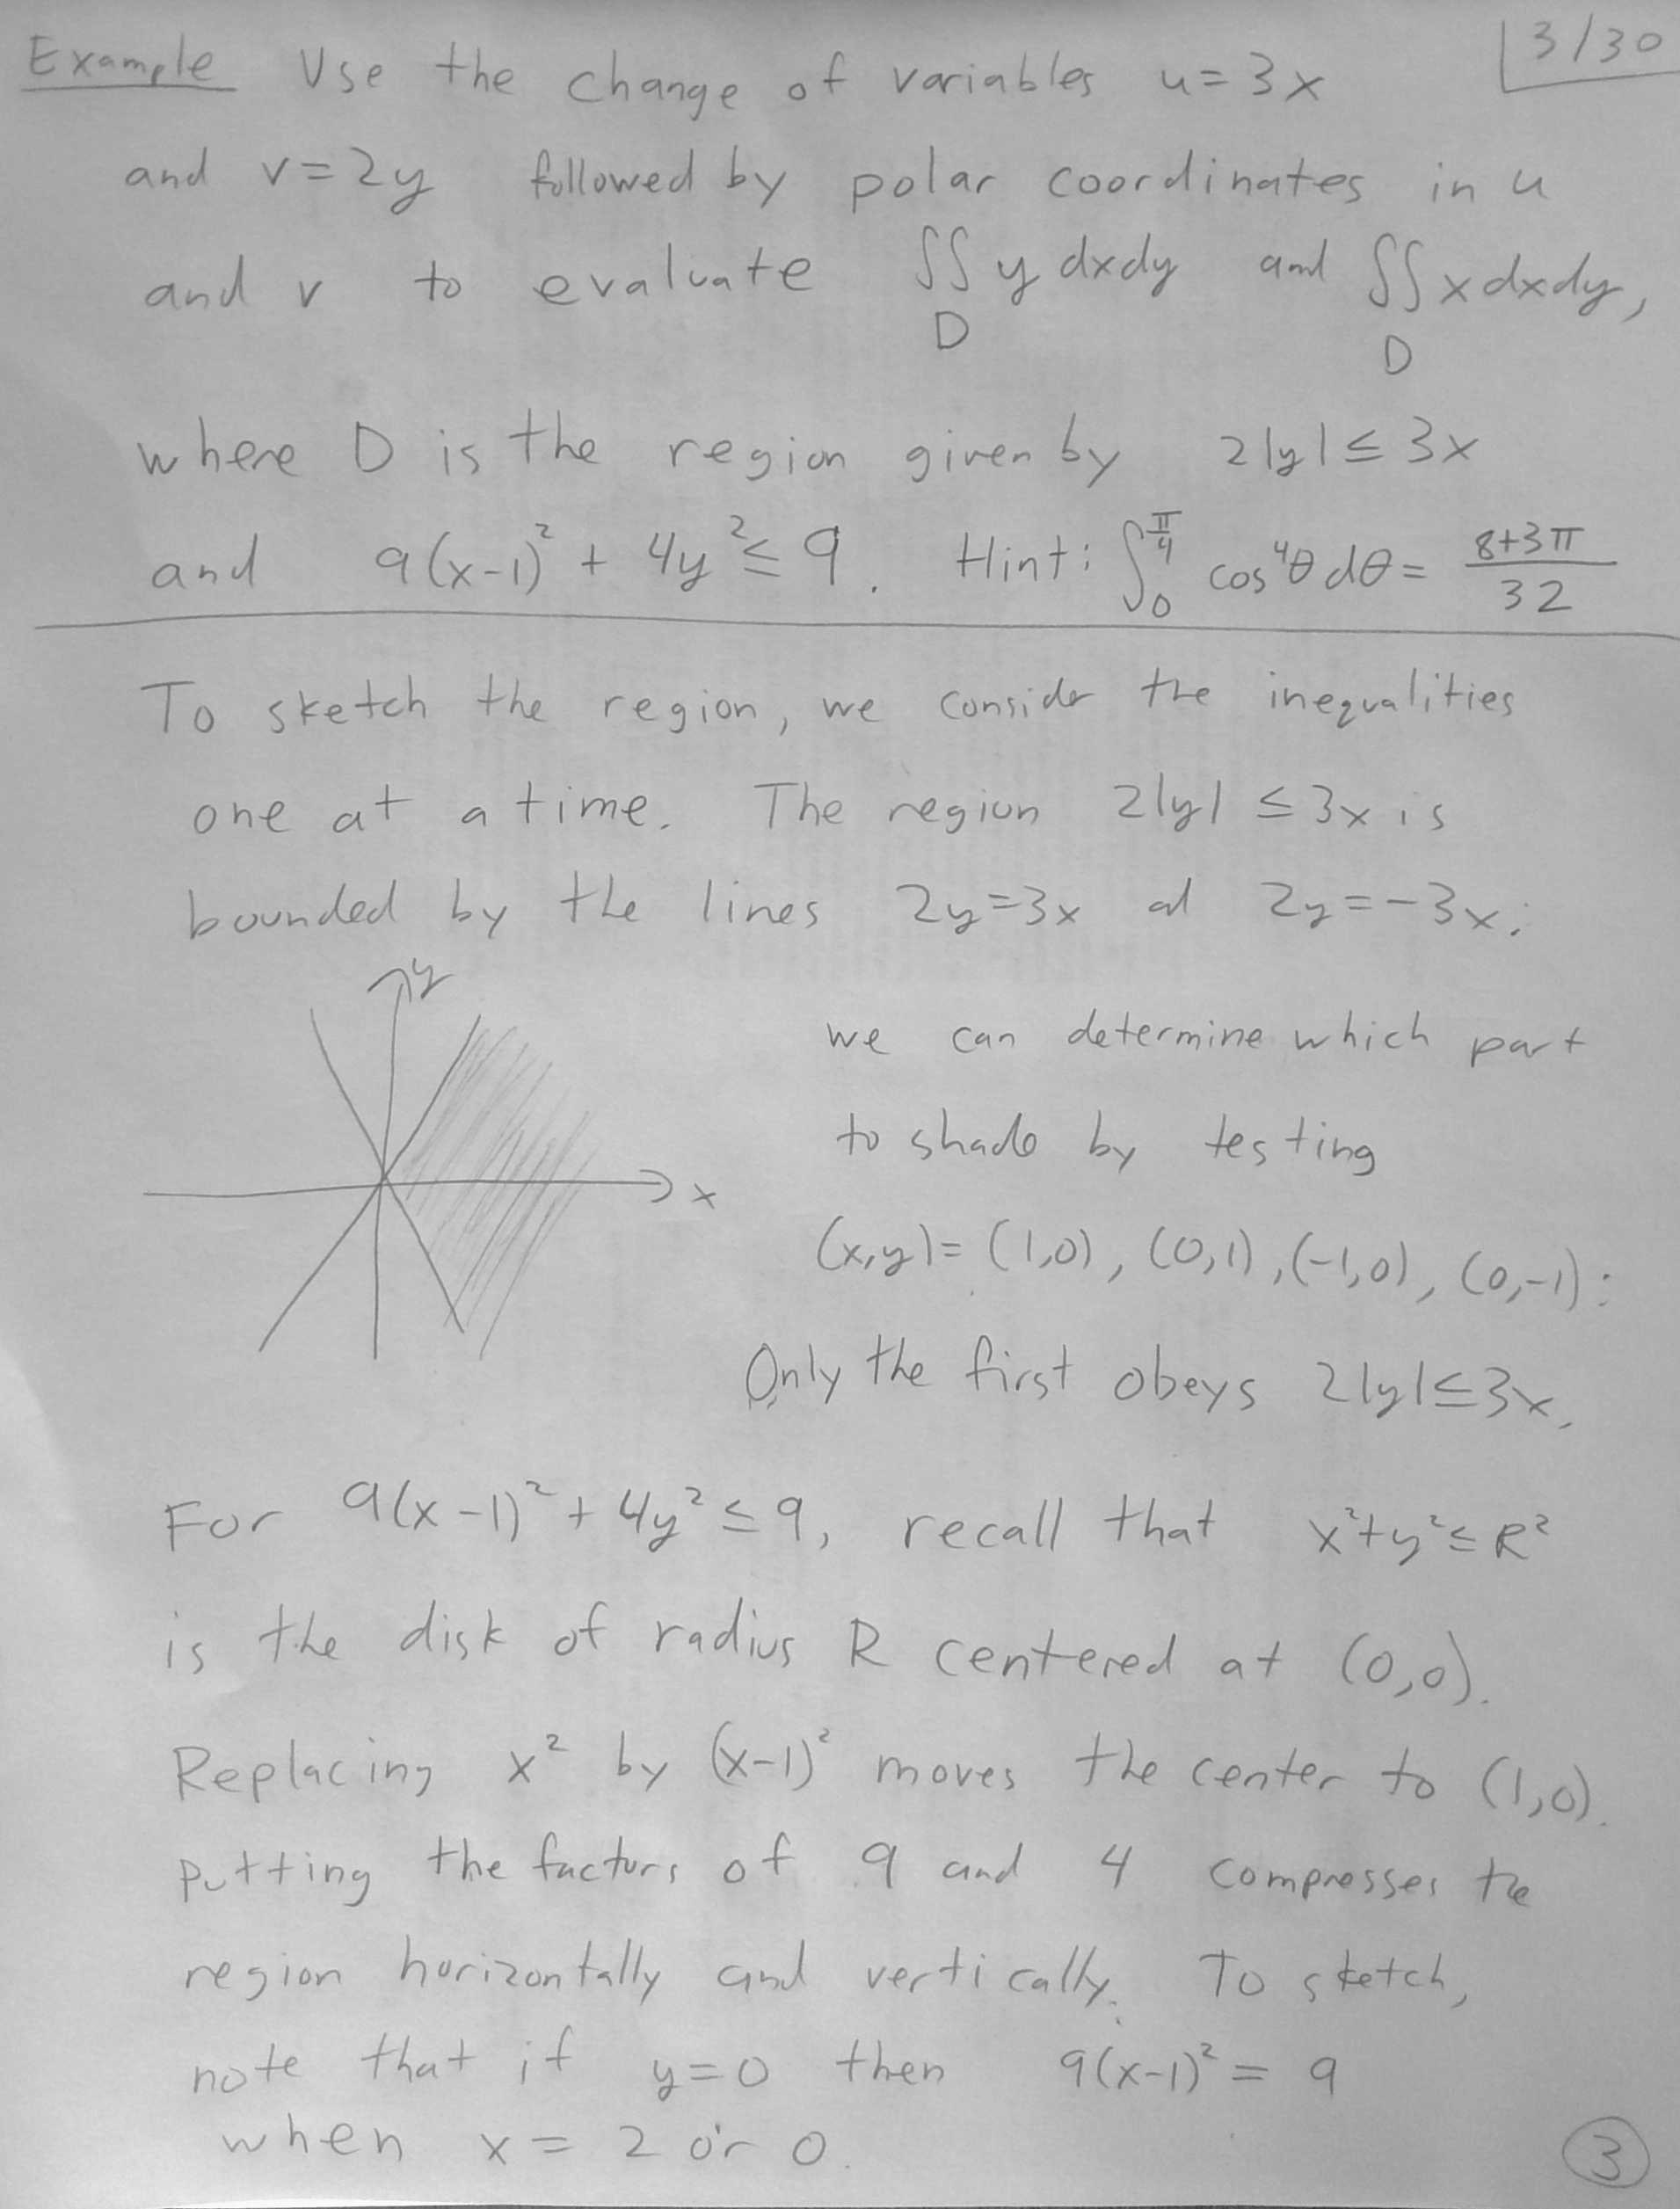 3/30
Example Use the change of variables u=3x
and v=2y followed by polar coordinates in u
and v to evaluate ∬_D y dxdy and ∬_D x dxdy,
where D is the region given by 2|y| ≤ 3x
and 9(x-1)² + 4y² ≤ 9. Hint: ∫_0^{π/4} cos⁴θ dθ = (8+3π)/32
To sketch the region, we consider the inequalities
one at a time. The region 2|y| ≤ 3x is
bounded by the lines 2y=3x and 2y=-3x:
y
x
we can determine which part
to shade by testing
(x,y)= (1,0), (0,1), (-1,0), (0,-1):
Only the first obeys 2|y|≤3x.
For 9(x-1)² + 4y² ≤ 9, recall that x²+y²≤R²
is the disk of radius R centered at (0,0).
Replacing x² by (x-1)² moves the center to (1,0).
Putting the factors of 9 and 4 compresses the
region horizontally and vertically. To sketch,
note that if y=0 then 9(x-1)² = 9
when x = 2 or 0.
3